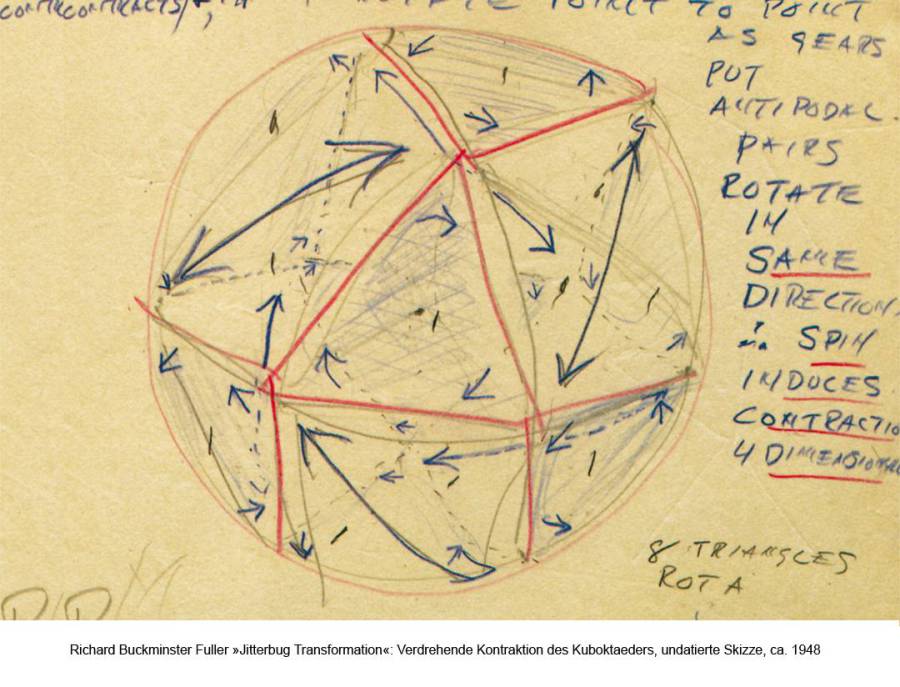 ROTATE POINT TO POINT
AS GEARS
PUT
ANTIPODAL
PAIRS
ROTATE
IN
SAME
DIRECTION
SPIN
INDUCES
CONTRACTIO
4 DIMENSIONAL
8 TRIANGLES
ROTA
Richard Buckminster Fuller »Jitterbug Transformation«: Verdrehende Kontraktion des Kuboktaeders, undatierte Skizze, ca. 1948